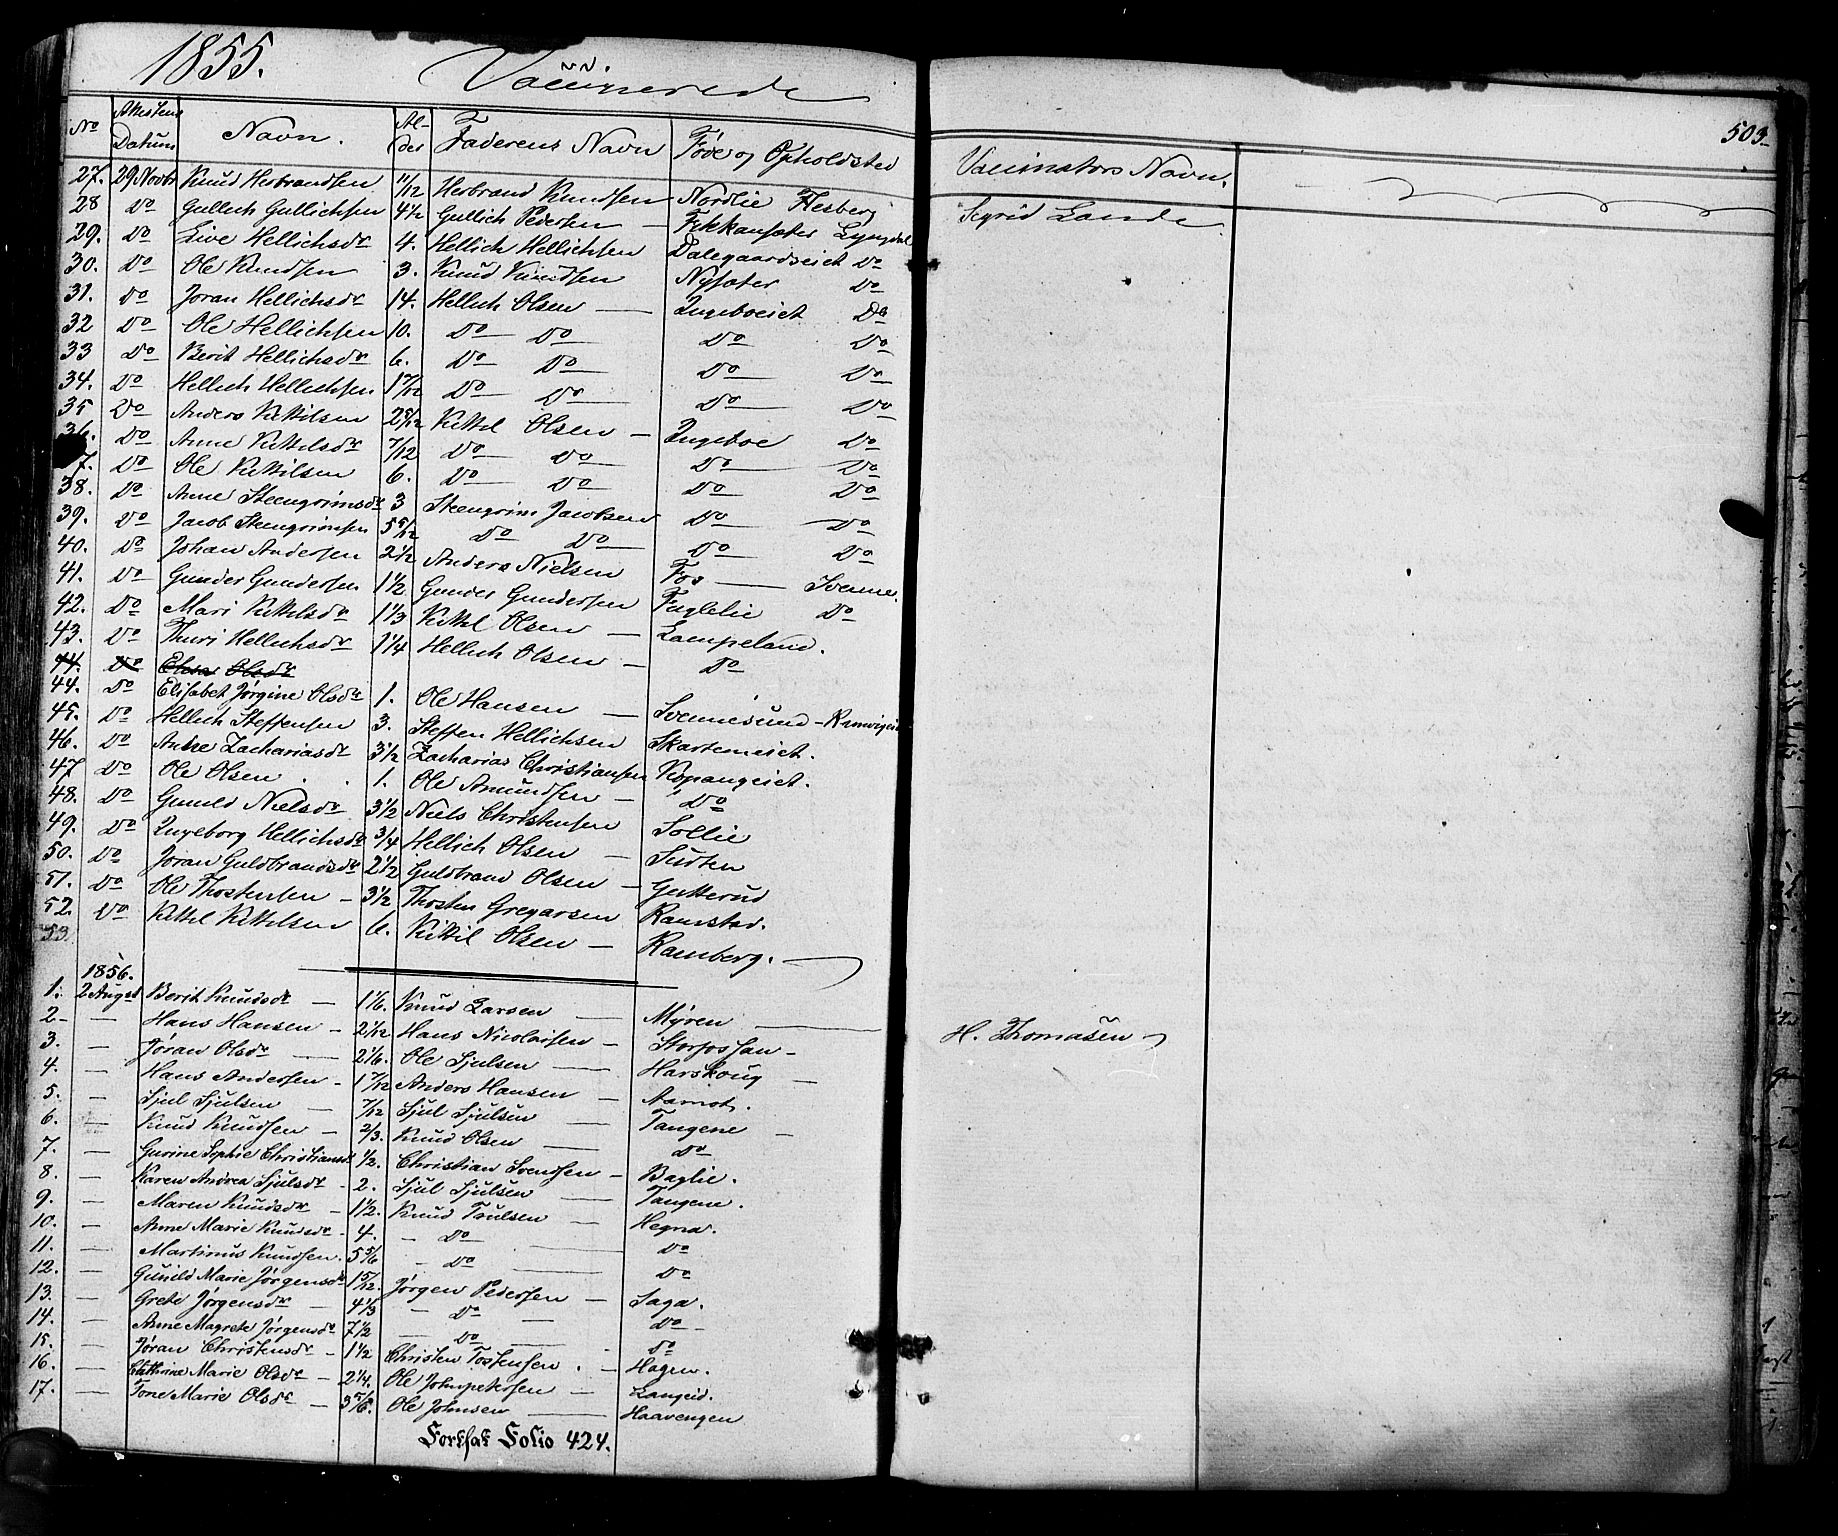 1855. Vaccinerede
503
No Attestens Datum Navn. Alder Faderens Navn Føde og Opholdsted Vaccinators Navn.
27. 29 Novbr Knud Herbrandsen 11/12 Herbrand Knudsen Nordlie Flesberg Sigrid Lande
28 Do Gullich Gullichsen 4 1/2 Gullich Pedersen — Lyngdal
29. Do Live Hellichsdr 4. Hellich Hellichsen Dalegaardseiet Do
30. Do Ole Knudsen 3. Knud Knudsen Nysæter Do
31. Do Joran Hellichsdr 14. Hellich Olsen — Ingeboeiet Do
32 Do Ole Hellichsen 10. Do Do Do Do
33 Do Berit Hellichsdr 6. Do Do Do Do
34. Do Hellich Hellichsen 1 7/12 Do Do Do Do
35 Do Anders Kittilsen 2 8/12 Kittil Olsen — Ingeboe Do
36. Do Anne Kittilsdr 7/12 Do Do Do Do
37. Do Ole Kittilsen 6. Do Do Do Do
38. Do Anne Steengrimsdr 3 Steengrim Jacobsen Do Do
39. Do Jacob Steengrimsen 5 5/12 Do Do Do Do
40. Do Johan Andersen 2 1/2 Anders Nielsen Fos — Svenne.
41. Do Gunder Gundersen 1 1/2 Gunder Gundersen Fuglelie Do
42. Do Mari Kittilsdr 1 1/3 Kittil Olsen — Lampeland.
43. Do Thuri Hellichsdr 1 1/4 Hellich Olsen — Do
44. Do Elisa Olsdr
44. Do Elisabet Jørgine Olsdr 1. Ole Hansen — Svennesund
45. Do Hellich Steffensen 3. Steffen Hellichsen Skartemeiet.
46. Do Anne Zachariasdr 3 1/2 Zacharias Christiansen Kopangeiet.
47 Do Ole Olsen 1. Ole Amundsen — Do
48. Do Gunild Nielsdr 3 1/2 Niels Christensen Sollie
49. Do Ingeborg Hellichsdr 3/4 Hellich Olsen —
50. Do Joran Guldbrandsdr 2 1/2 Guldbrand Olsen — Gutterud
51. Do Ole Thostensen — 3 1/2 Thosten Gregarsen Ramstad.
52. Do Kittil Kittilsen 6. Kittil Olsen — Ramberg. —
53
1856.
1. 2 August Berit Knudsdr — 1 1/6. Knud Larsen — Mÿren —
2 — Hans Hansen — 2 1/12 Hans Nicolaisen — H. Thomasen
3. — Jøran Olsdr — 2 1/6. Ole Sjulsen — Harskoug —
4. — Hans Andersen — 1 7/12 Anders Hansen — Aamot.
5. — Sjul Sjulsen — 7/12 Sjul Sjulsen — Tangene —
6. — Knud Knudsen — 2/3. Knud Olsen — Do
7. — Gurine Sophie Christiansdr 1/2. Christian Svendsen — Baglie.
8. — Karen Andrea Sjulsdr — 2. Sjul Sjulsen — Tangene.
9. — Maren Knudsdr — 1 1/2. Knud Trulsen — Hegna.
10. — Anne Marie Knudsdr — 4. — Do — Do
11. — Martinus Knudsen. 5 5/6 — Do — Do
12. — Gunild Marie Jørgensdr 1 5/12. Jørgen Pedersen — Saga.
13. — Grete Jørgensdr — 4 1/3 — Do — Do —
14. — Anne Magrete Jørgensdr 7 1/2 — Do — Do
15. — Jøran Christensdr — 1 1/2 Christen Tostensen. — Hagen.
16. — Cathrine Marie Olsdr — 2 1/4. Ole Johnpetersen — Langeid.
17. — Tone Marie Olsdr — 3 5/6. Ole Johnsen — Haavengen
Fortsat Folio 424.